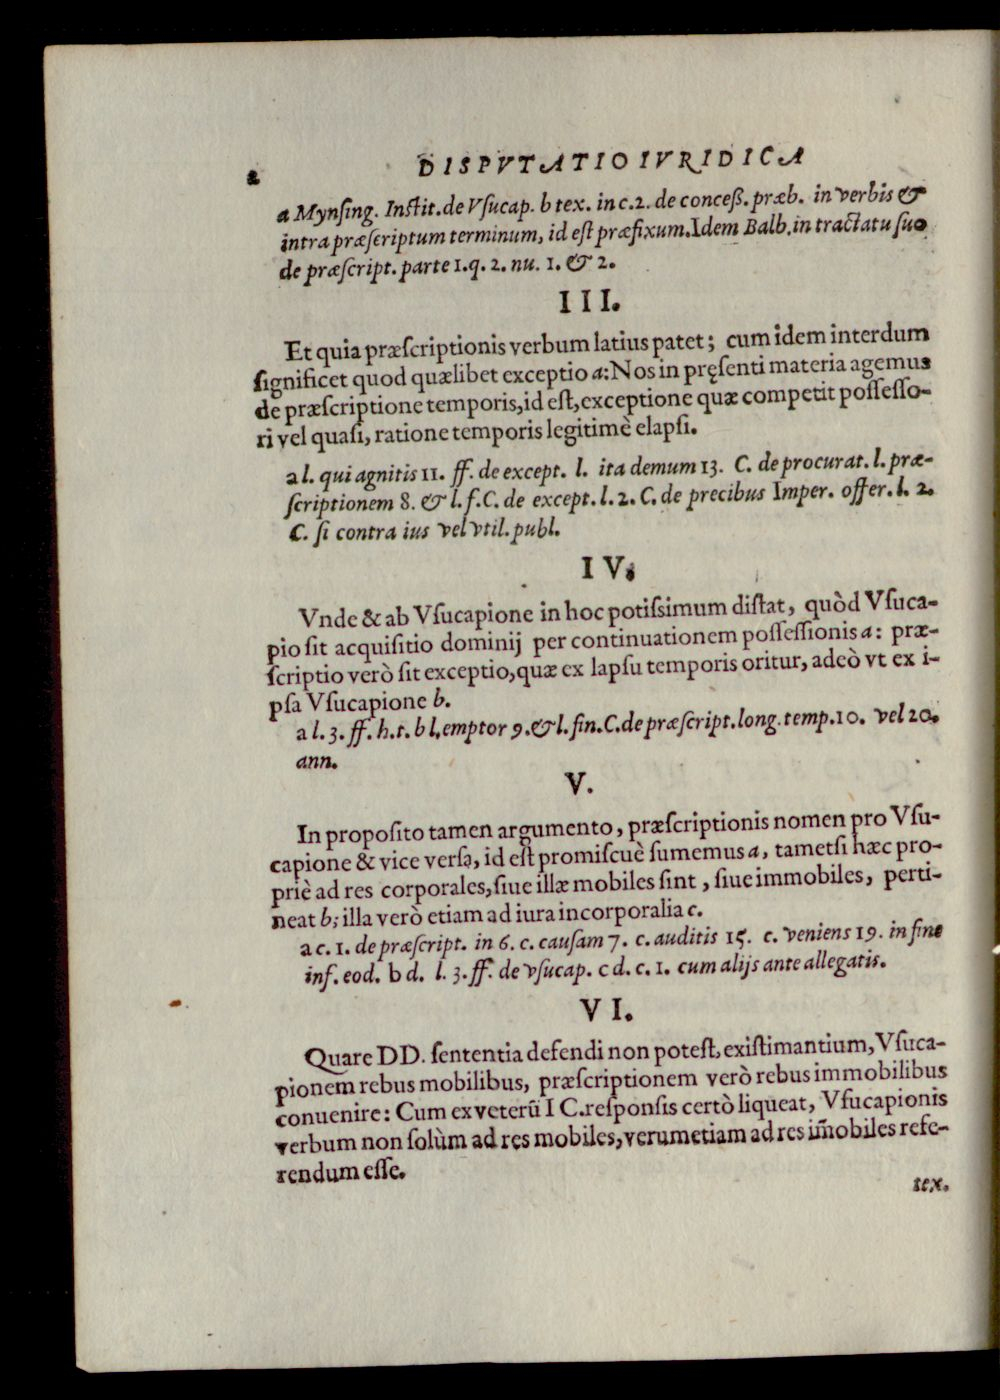 2 DISPVTATIO IVRIDICA
a Mynſing. Inſtit. de Vſucap. b tex. in c. 2. de conceß. præb. in verbis &
intra præſcriptum terminum, id eſt præfixum. Idem Balb. in tractatu ſuo
de præſcript. parte 1. q. 2. nu. 1. & 2.
III.
Et quia præſcriptionis verbum latius patet; cum idem interdum
ſignificet quod quælibet exceptio a: Nos in pręſenti materia agemus
de præſcriptione temporis, id eſt, exceptione quæ competit poſſeſſo-
ri vel quaſi, ratione temporis legitimè elapſi.
a l. qui agnitis 11. ff. de except. l. ita demum 13. C. de procurat. l. præ-
ſcriptionem 8. & l. f. C. de except. l. 2. C. de precibus Imper. offer. l. 2.
C. ſi contra ius vel vtil. publ.
IV.
Vnde & ab Vſucapione in hoc potiſsimum diſtat, quòd Vſuca-
pio ſit acquiſitio dominij per continuationem poſſeſſionis a: præ-
ſcriptio verò ſit exceptio, quæ ex lapſu temporis oritur, adeò vt ex i-
pſa Vſucapione b.
a l. 3. ff. h. t. b l. emptor 9. & l. fin. C. de præſcript. long. temp. 10. vel 20.
ann.
V.
In propoſito tamen argumento, præſcriptionis nomen pro Vſu-
capione & vice verſa, id eſt promiſcuè ſumemus a, tametſi hæc pro-
priè ad res corporales, ſiue illæ mobiles ſint, ſiue immobiles, perti-
neat b; illa verò etiam ad iura incorporalia c.
a c. 1. de præſcript. in 6. c. cauſam 7. c. auditis 15. c. veniens 19. in fine
inf. eod. b d. l. 3. ff. de vſucap. c d. c. 1. cum alijs ante allegatis.
VI.
Quare DD. ſententia defendi non poteſt, exiſtimantium, Vſuca-
pionem rebus mobilibus, præſcriptionem verò rebus immobilibus
conuenire: Cum ex veterū IC. reſponſis certò liqueat, Vſucapionis
verbum non ſolùm ad res mobiles, verumetiam ad res im̄obiles refe-
rendum eſſe.
tex.